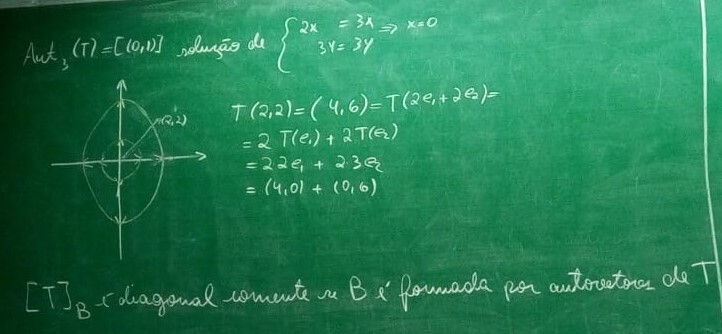 Aut₃(T) = [(0,1)] solução de { 2x = 3x ⇒ x=0
3y = 3y
(2,2)
T(2,2) = (4,6) = T(2e₁+2e₂) =
= 2 T(e₁) + 2T(e₂)
= 2 2e₁ + 2·3e₂
= (4,0) + (0,6)
[T]_B é diagonal somente se B é formada por autovetores de T